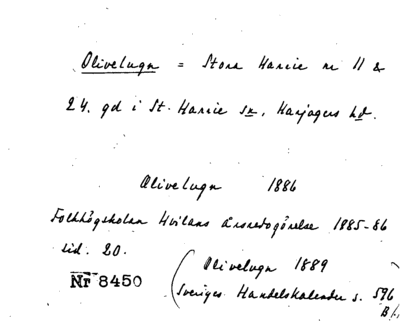 Olivelugn = Stora Harrie nr 11 &
24. gd i St. Harrie sn, Harjagers hd.
Olivelugn 1886
Folkhögskolan Hvilans årsredogörelse 1885-86
sid. 20.
(Olivelugn 1889
Nr 8450
Sveriges Handelskalender s. 596